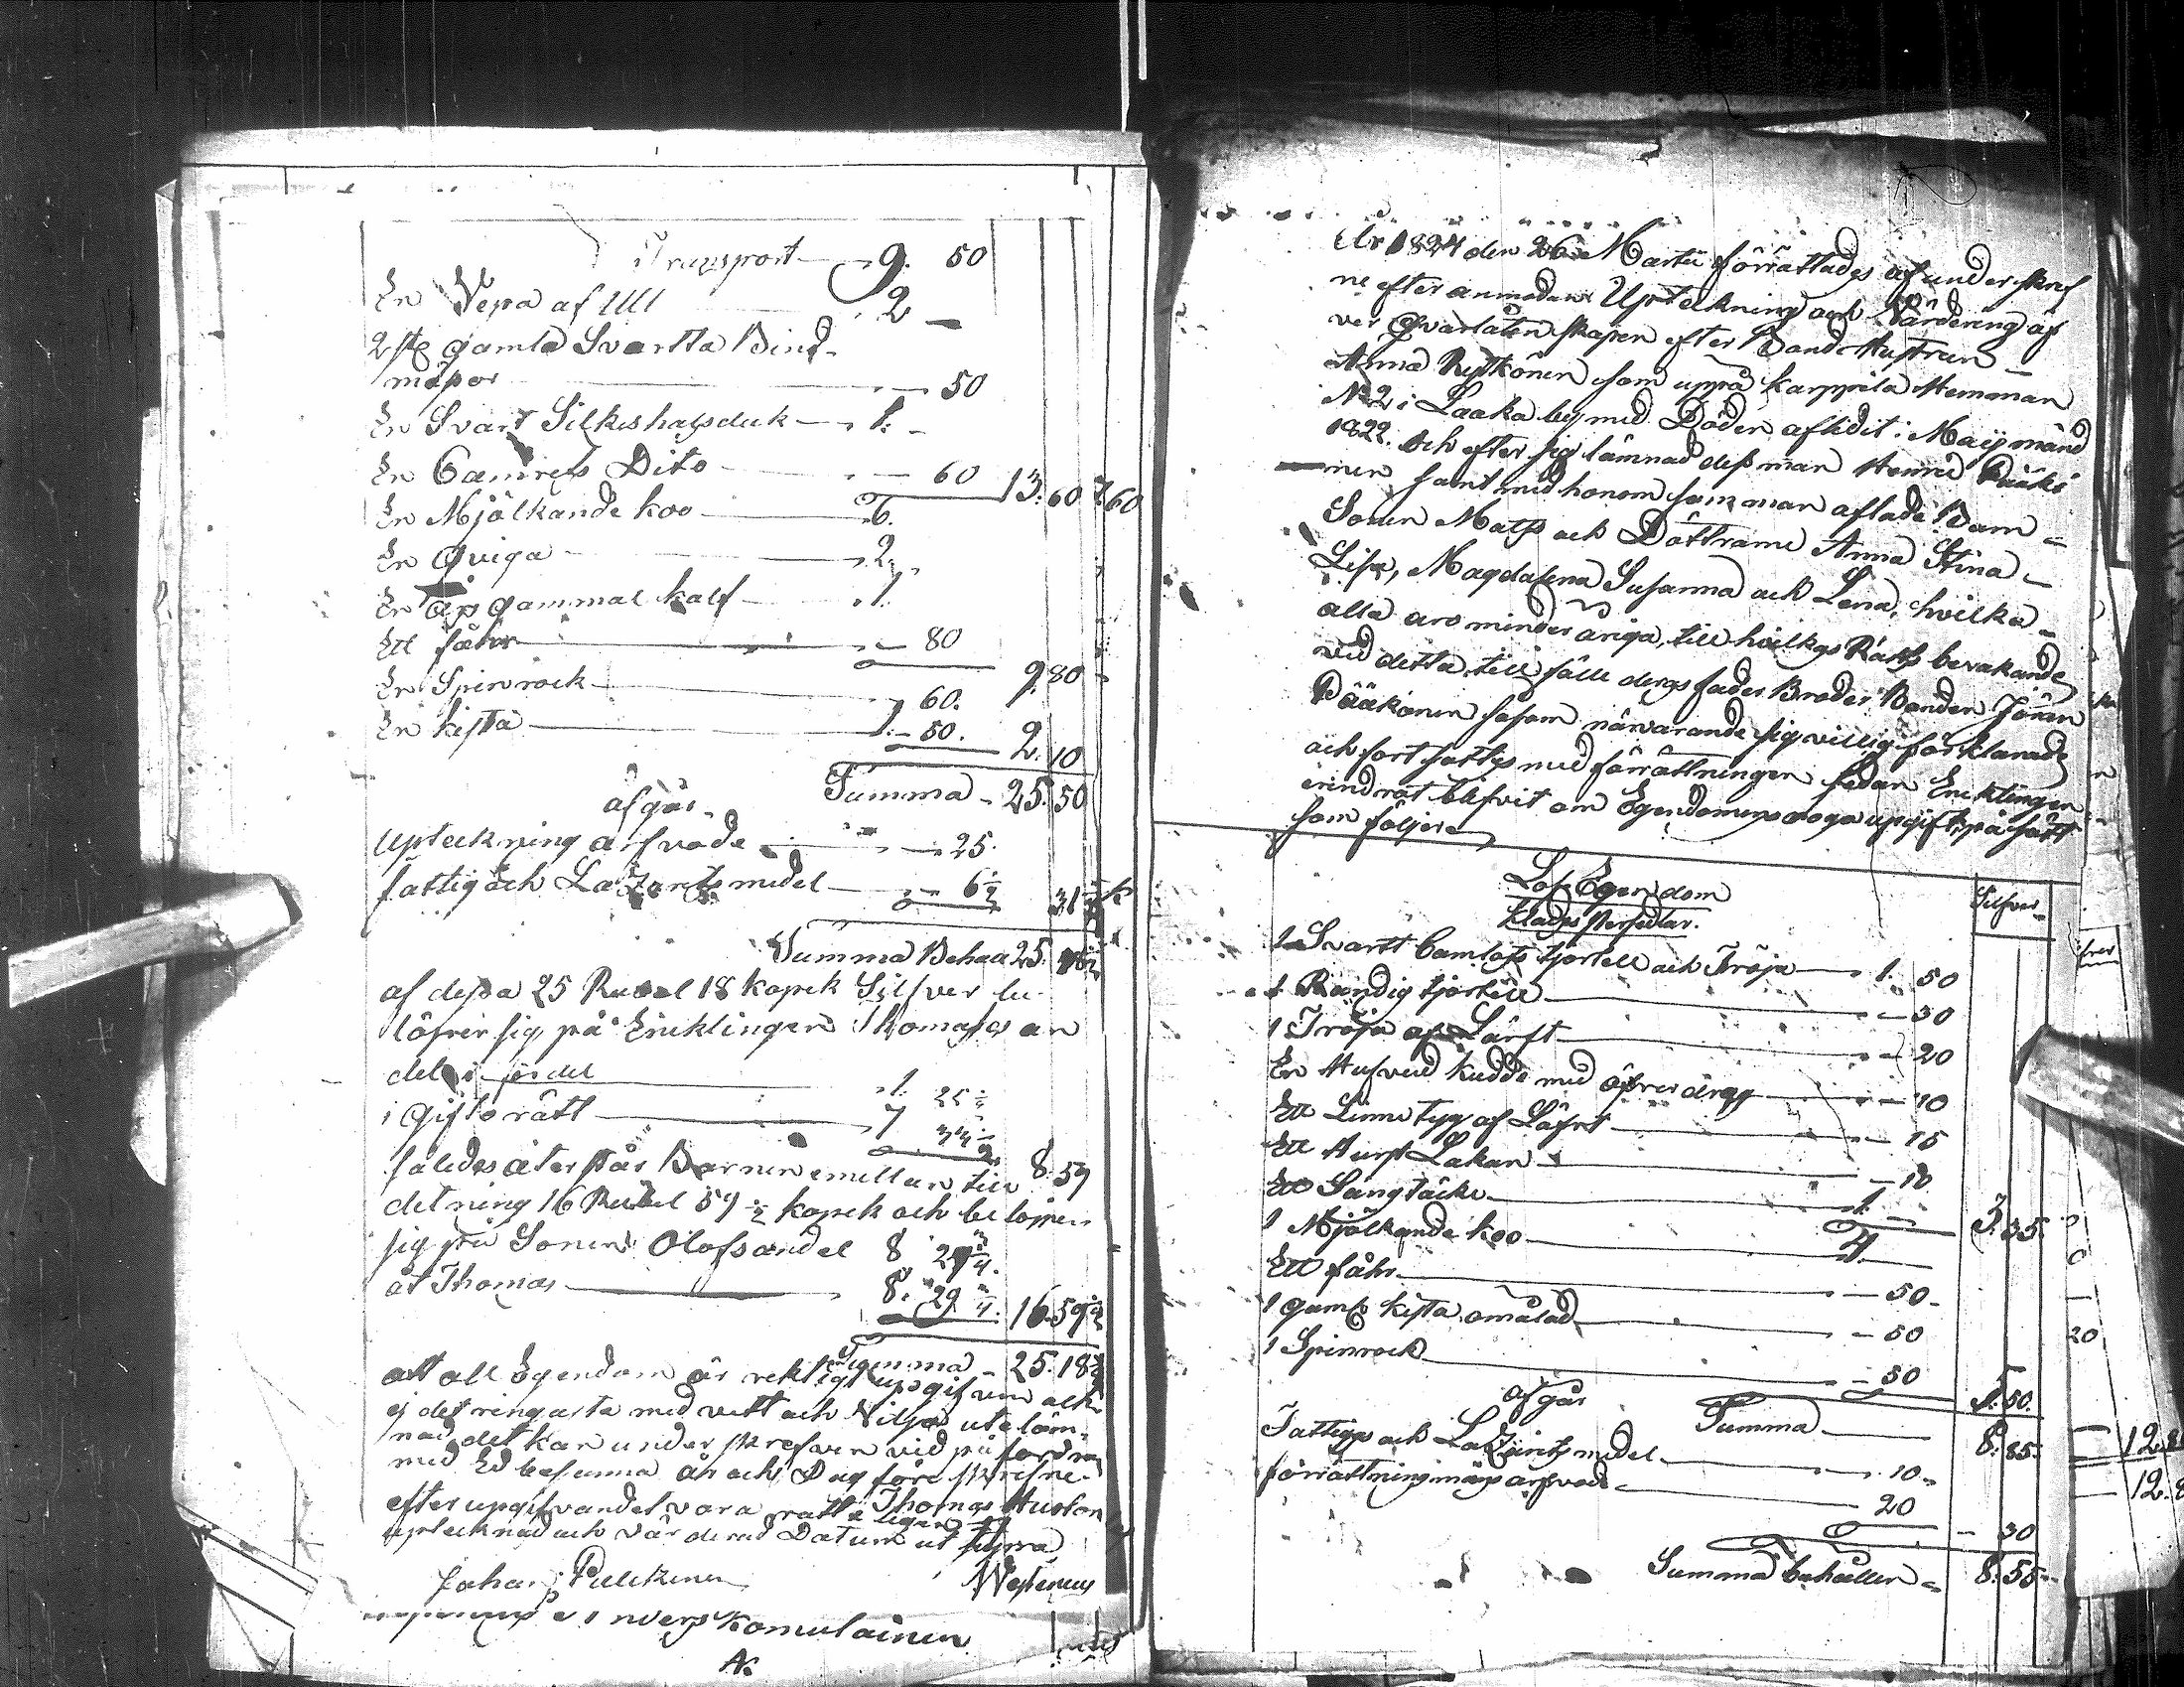 Transport - 9. 50
En Vepa af Ull - 2 -
2 st. gamla Svartta Bind-
måsor - 50
En Svart Silkeshalsduk - 1. -
En Camrets Dito - 60 13. 60
En Mjölkande koo - 6.
En Qviga - 2.
En års gammal kalf - 1.
Ett fåhr - 80
9. 80
En Spinrock - 60.
En kista - 1. 50.
2. 10
Summa - 25. 50
afgår
upteckning arfvode - 25.
fattig och Lazarets medel - 6 1/2
31 1/2
Summa Behåll 25. 18 1/2
af dessa 25 Rubel 18 kopek Silfver be-
löper sig på Encklingen Thomas an
del i fördel - 1. 25
i Giftorätt - 7 33
8. 59
således återstår Barnen emellan till
delning 16 Rubel 59 1/2 kopek och belöper
sig på Sonen Olofs andel 8 29 3/4.
åt Thomas - 8. 29 3/4. 16. 59 1/2
Summa - 25. 18 1/2
att all Egendom är rektigt upgifven och
ej det ringasta med vett och Vilja uteläm-
nad, det kan underskrefven vid påfordran
med Ed besanna år och Dag före skrefne.
Thomas
efter upgifvandet vara rätteligen
uptecknad och värderad Datum ut supra
Johan Pulckinen
Westenius
Komulainen
År 1824 den 26 Martii förrättades af underskref
ne efter anmodan Upteckning och Värdering öf
ver Qvarlåtenskapen efter Bonde Hustrun
Anna Rytkönen som uppå Karppila Hemman
No 2 i Laaka by med Döden aflidit i Maij månad
1822. Och efter sig lämnad dess man Henric Pääkö
nen samt med honom samman aflade Barn
Sonen Matts och Döttrarne Anna Stina
Lisa, Magdalena Susanna och Lena, hvilka
alla äro minderåriga, till hvilkas Rätts bevakande
vid detta tillfälle deras fader Broder Bonden Jöran
Pääkönen såsom närvarande sig villig förklarade
och fortsattes med förrättningen sedan Encklingen
erindrat blifvit om Egendomens noga upgift, på sätt
som följer
Lös Egendom
Silfver
Klades Persedlar.
1 Svartt Camlots kjortell och Tröja - 1. 50
1 Randig kjortell - 30
1 Tröja af Lärft - 20
En Hufvud kudde med öfverdrag - 10
Ett Linne tyg af Läfrt - 15
Ett Hurst Lakan - 10
Ett Sängtäcke - 1. -
3. 35.
1 Mjölkande koo - 4. -
Ett fåhr - 50 -
1 gamb kista omålad - 50
1 Spinrock - 50
5. 50.
Summa - 8. 85.
afgår
Fattigs och Lazarets medel - 10
förrättningsmäns arfvode - 20
- 30
Summa behållen - 8. 55
20
12.
12.